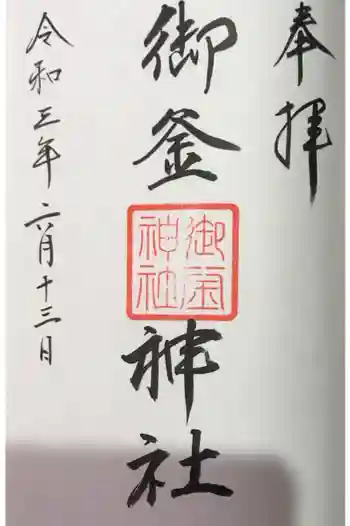 奉拝
御釜神社
御釜神社
令和三年六月十三日